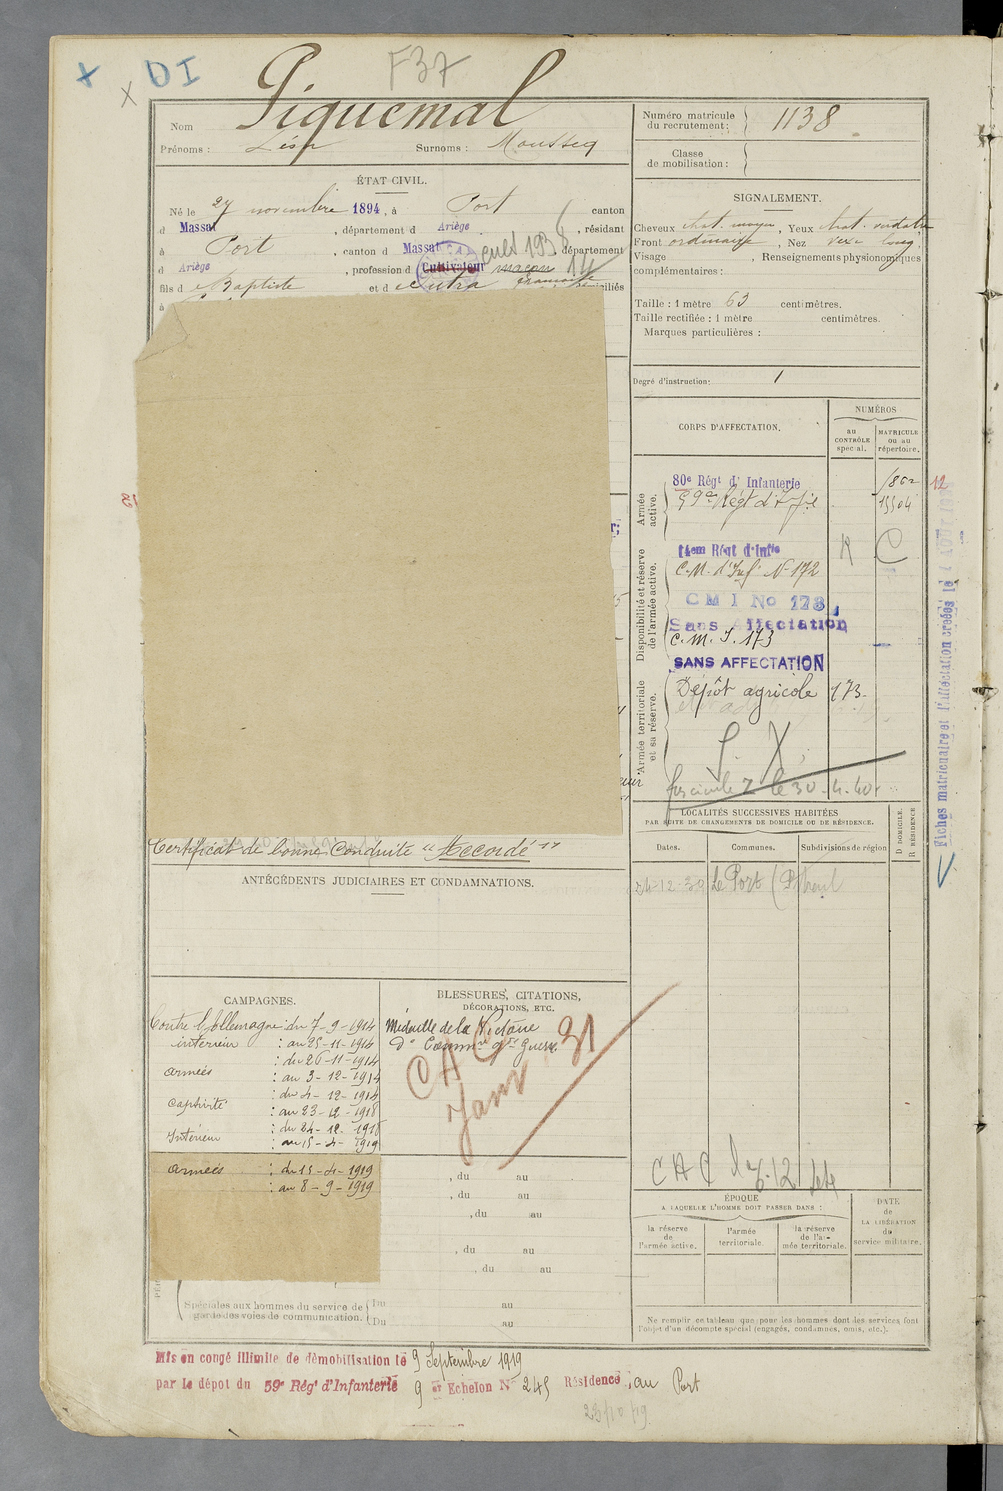 x x DI F37
Nom Piquemal
Prénoms : Léon Surnoms : Mousseq
ÉTAT CIVIL.
Né le 27 novembre 1894, à Port canton
d Massat, département d Ariège, résidant
à Port, canton d Massat département
d Ariège, profession d Cultivateur maçon
fils d Baptiste et d
à
Certificat de bonne Conduite "Accordé"
ANTÉCÉDENTS JUDICIAIRES ET CONDAMNATIONS.
CAMPAGNES.
Contre l'Allemagne : du 7-9-1914
intérieur : au 25-11-1914
: du 26-11-1914
armées : au 3-12-1914
: du 4-12-1914
Captivité : au 23-12-1918
: du 24-12-1918
Intérieur : au 15-4-1919
armées : du 15-4-1919
: au 8-9-1919
BLESSURES, CITATIONS,
DÉCORATIONS, ETC.
Médaille de la Victoire
d° Comm.ve gde Guerre
CAC
Janv 31
, du au
, du au
, du au
, du au
, du au
Spéciales aux hommes du service de { Du au
garde des voies de communication. { Du au
Numéro matricule
du recrutement : } 1138
Classe
de mobilisation : }
SIGNALEMENT.
Cheveux chat. moyen, Yeux chat. verdâtre
Front ordinaire, Nez long
Visage , Renseignements physionomiques
complémentaires :
Taille : 1 mètre 63 centimètres.
Taille rectifiée : 1 mètre centimètres.
Marques particulières :
Degré d'instruction : 1
CORPS D'AFFECTATION.
NUMÉROS
au
CONTRÔLE
spécial.
MATRICULE
ou au
répertoire.
Armée
active.
80e Régt d'Infanterie
59e Régt d'Infie 15504
Disponibilité et réserve
de l'armée active.
14em Régt d'Infie
C.M. d'Inf. N° 172
C M I No 178
Sans Affectation
C.M.I. 173
SANS AFFECTATION
Armée territoriale
et sa réserve.
Dépôt agricole 173
S. X.
fascicule Z le 30-4-40
LOCALITÉS SUCCESSIVES HABITÉES
PAR SUITE DE CHANGEMENTS DE DOMICILE OU DE RÉSIDENCE.
Dates.
Communes.
Subdivisions de région
D DOMICILE.
R RÉSIDENCE
24-12-30 Le Port
CAC
ÉPOQUE
A LAQUELLE L'HOMME DOIT PASSER DANS :
la réserve
de
l'armée active.
l'armée
territoriale.
la réserve
de l'ar-
mée territoriale.
DATE
de
LA LIBÉRATION
du
service militaire.
Ne remplir ce tableau que pour les hommes dont les services font
l'objet d'un décompte spécial (engagés, condamnés, omis, etc.).
12
Fiches matriculaire et d'affectation créées le
Mis en congé illimité de démobilisation le 9 Septembre 1919
par le dépôt du 59e Régt d'Infanterie 9 er Echelon N° 245 Résidence : au Port